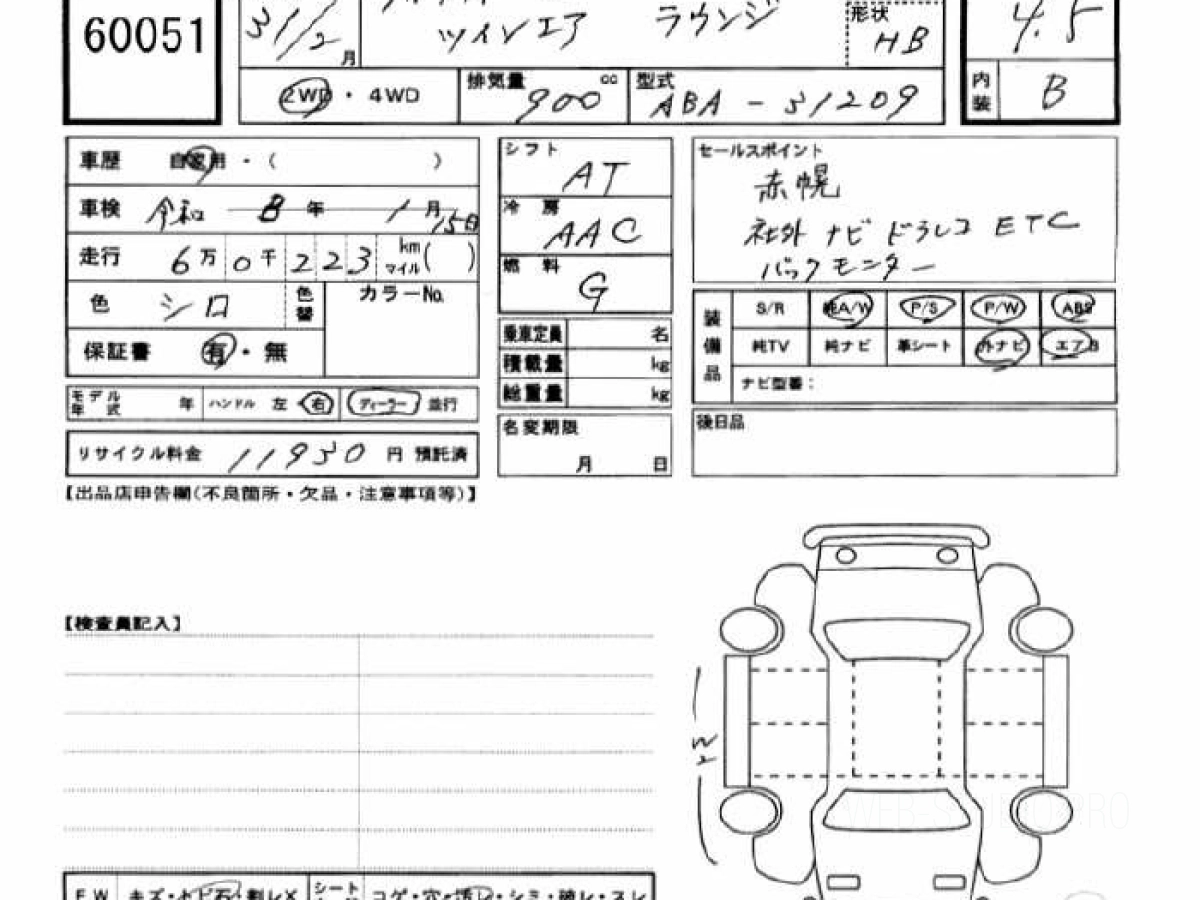 60051
31/2 月
ツインエア ラウンジ
形状 HB
4.5
2WD・4WD
排気量 900 cc
型式 ABA-31209
内装 B
車歴 自家用・( )
車検 令和 8年 1月 15日
走行 6万0千223 km マイル( )
色 シロ 色替
カラーNo.
保証書 有・無
モデル年式 年 ハンドル 左 右 ディーラー 並行
リサイクル料金 11930 円 預託済
シフト AT
冷房 AAC
燃料 G
乗車定員 名
積載量 kg
総重量 kg
名変期限
月 日
セールスポイント
赤幌
社外 ナビ ドラレコ ETC
バックモニター
装備品
S/R 純A/W P/S P/W ABS
純TV 純ナビ 革シート 外ナビ エアB
ナビ型番：
後日品
【出品店申告欄(不良箇所・欠品・注意事項等)】
【検査員記入】
W2
FW キズ・トビ石・割レX シート コゲ・穴・汚レ・シミ・破レ・スレ